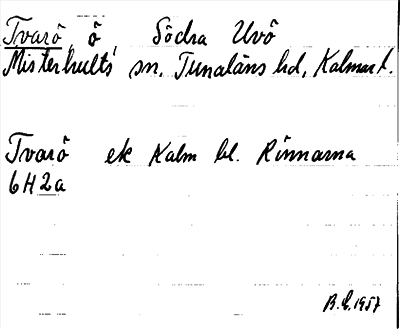 Tvarö, ö Södra Uvö
Misterhults sn, Tunaläns hd, Kalmar l.
Tvarö ek Kalm bl. Rinnarna
6H2a
B.L. 1957